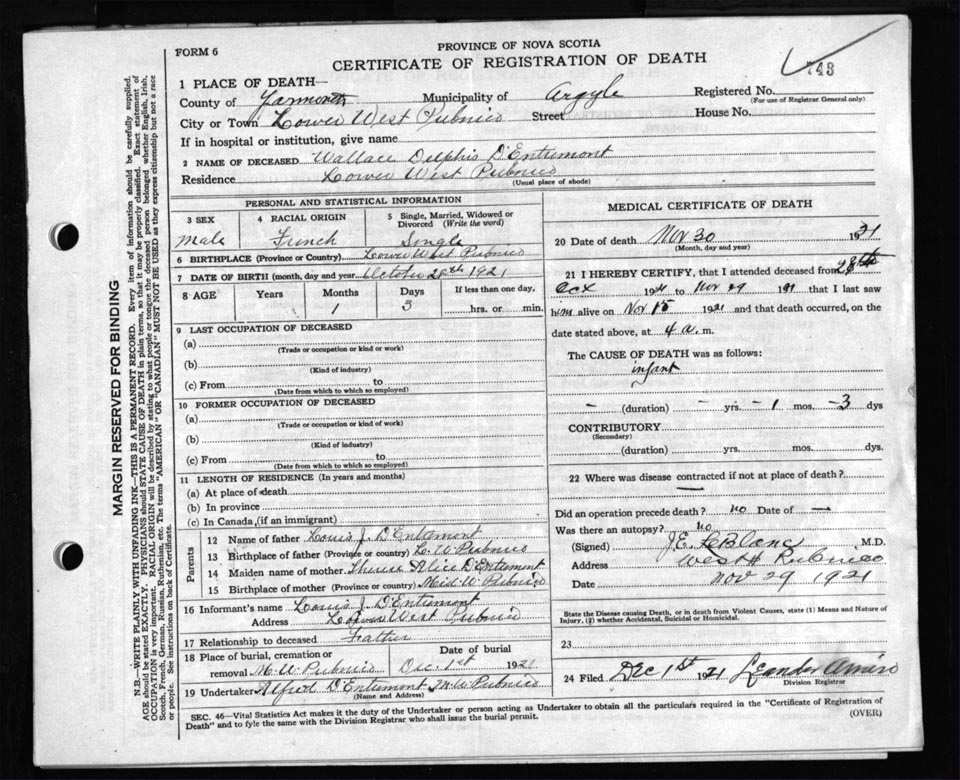 PROVINCE OF NOVA SCOTIA
FORM 6
CERTIFICATE OF REGISTRATION OF DEATH
743
1 PLACE OF DEATH—
County of Yarmouth Municipality of Argyle Registered No.
(For use of Registrar General only)
City or Town Lower West Pubnico Street House No.
If in hospital or institution, give name
2 NAME OF DECEASED Wallace Delphis D'Entremont
Residence Lower West Pubnico
(Usual place of abode)
PERSONAL AND STATISTICAL INFORMATION
3 SEX
Male
4 RACIAL ORIGIN
French
5 Single, Married, Widowed or Divorced (Write the word)
Single
6 BIRTHPLACE (Province or Country) Lower West Pubnico
7 DATE OF BIRTH (month, day and year) October 28th 1921
8 AGE Years Months Days If less than one day,
1 3 hrs. or min.
9 LAST OCCUPATION OF DECEASED
(a)
(Trade or occupation or kind or work)
(b)
(Kind of industry)
(c) From to
(Date from which to which so employed)
10 FORMER OCCUPATION OF DECEASED
(a)
(Trade or occupation or kind of work)
(b)
(Kind of industry)
(c) From to
(Date from which to which so employed)
11 LENGTH OF RESIDENCE (In years and months)
(a) At place of death
(b) In province
(c) In Canada, (if an immigrant)
Parents
12 Name of father Louis J. D'Entremont
13 Birthplace of father (Province or country) Lo. W. Pubnico
14 Maiden name of mother Alice D'Entremont
15 Birthplace of mother (Province or country) Mid W. Pubnico
16 Informant's name Louis J. D'Entremont
Address Lower West Pubnico
17 Relationship to deceased Father
18 Place of burial, cremation or removal M. W. Pubnico
Date of burial
Dec. 1st 1921
19 Undertaker Alfred D'Entremont M. W. Pubnico
(Name and Address)
MEDICAL CERTIFICATE OF DEATH
20 Date of death Nov 30 1921
(Month, day and year)
21 I HEREBY CERTIFY, that I attended deceased from 28th
Oct 1921 to Nov 29 1921 that I last saw
him alive on Nov 15 1921 and that death occurred, on the
date stated above, at 4 a. m.
The CAUSE OF DEATH was as follows:
infant
– (duration) – yrs. – 1 mos. – 3 dys
CONTRIBUTORY
(Secondary)
(duration) yrs. mos. dys.
22 Where was disease contracted if not at place of death?
—
Did an operation precede death? no Date of —
Was there an autopsy? no
(Signed) J.E. LeBlanc M.D.
Address West Pubnico
Date Nov 29 1921
State the Disease causing Death, or in death from Violent Causes, state (1) Means and Nature of
Injury, (2) whether Accidental, Suicidal or Homicidal.
23
24 Filed Dec 1st 1921 Leander Amiro
Division Registrar
SEC. 46—Vital Statistics Act makes it the duty of the Undertaker or person acting as Undertaker to obtain all the particulars required in the "Certificate of Registration of
Death" and to fyle the same with the Division Registrar who shall issue the burial permit.
(OVER)
MARGIN RESERVED FOR BINDING
N.B.—WRITE PLAINLY WITH UNFADING INK—THIS IS A PERMANENT RECORD. Every item of information should be carefully supplied.
AGE should be stated EXACTLY. PHYSICIANS should STATE CAUSE OF DEATH in plain terms, so that it may be properly classified. Exact statement of
OCCUPATION is very important. RACIAL ORIGIN will be described by stating to what people or tongue the deceased person belonged whether English, Irish,
Scotch, French, German, Russian, Ruthenian, etc. The terms "AMERICAN" OR "CANADIAN" MUST NOT BE USED as they express citizenship but not a race
or people. See instructions on back of Certificate.